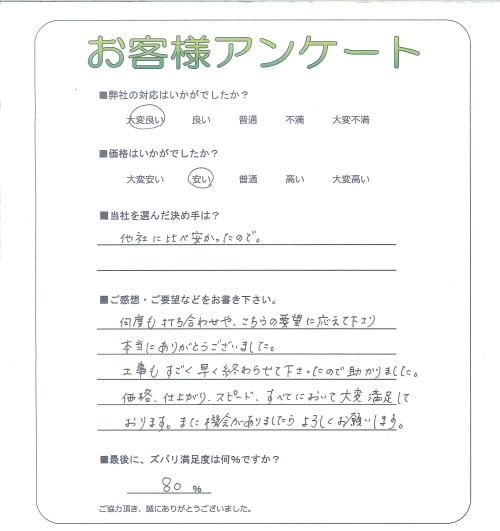 お客様アンケート
■弊社の対応はいかがでしたか?
大変良い 良い 普通 不満 大変不満
■価格はいかがでしたか?
大変安い 安い 普通 高い 大変高い
■当社を選んだ決め手は?
他社に比べ安かったので。
■ご感想・ご要望などをお書き下さい。
何度も打ち合わせや、こちらの要望に応えて下さり
本当にありがとうございました。
工事もすごく早く終わらせて下さったので助かりました。
価格、仕上がり、スピード、すべてにおいて大変満足して
おります。また機会がありましたらよろしくお願いします。
■最後に、ズバリ満足度は何%ですか?
80 %
ご協力頂き、誠にありがとうございました。